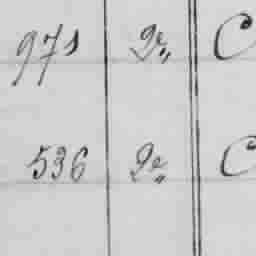 971 2e„ C
536 2e„ C